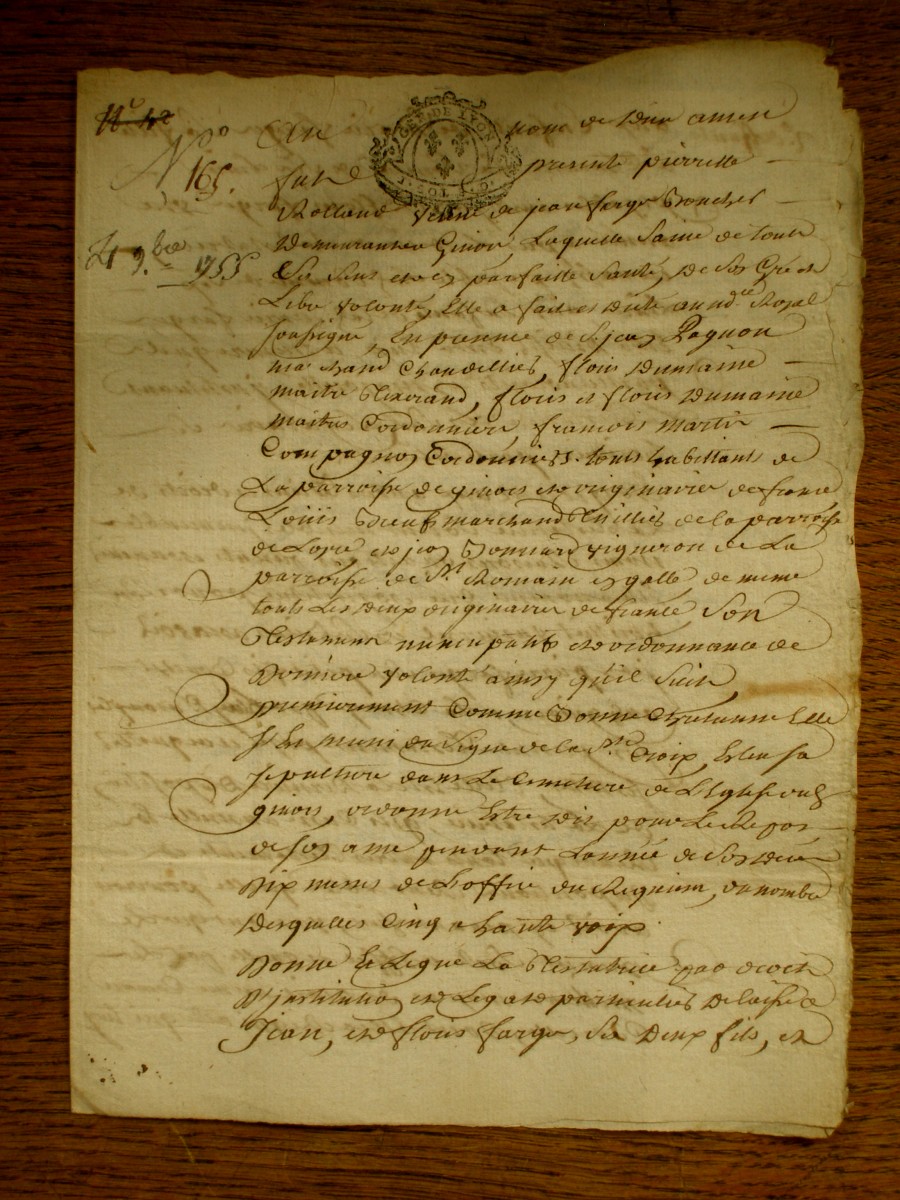 N° 42
N° 165.
21 9.bre 1755
GEN. DE LYON
Au nom de Dieu amen
fut presente pierrette
Rolland veuve de jean farge Boucher
Demeurante a Givors, Laquelle Saine de touts
Ses Sens et en parfaitte Santé, De Son Gré et
Libre volonté, Elle a fait et dicté au nd.re Royal
soussigné, En presence de Sr jean Pagnon
marchand Chandellier, floris Dumaine
maitre Tisserand, floris et floris Dumaine
maitres Cordonniers, francois martin
Compagnon Cordonniers. touts habittants de
La parroisse de givors et originaires de france
Loüis marchand de la parroisse
de Loire, et jean Bonnard vigneron de La
parroisse de St Romain en galle, de meme
touts Les deux originaires de france Son
Testament nuncupatif et ordonnance de
Derniere volonté ainsy qu'il Suit
premierement Comme Bonne Chretienne Elle
s'est muni du Signe de la Ste Croix, Esleu sa
sepulture dans Le Cimetiere de L'Eglise dud.
givors, ordonne Estre dit pour Le Repos
de son ame pendant L'année de Son deces
Dix messes de L'office de Requiem, du nombre
Desquelles Cinq a haute voix.
Donne Et Legue La Testatrice par droit
D'institution et Legat particulier delaissé a
Jean, et floris farge, Ses Deux fils, et